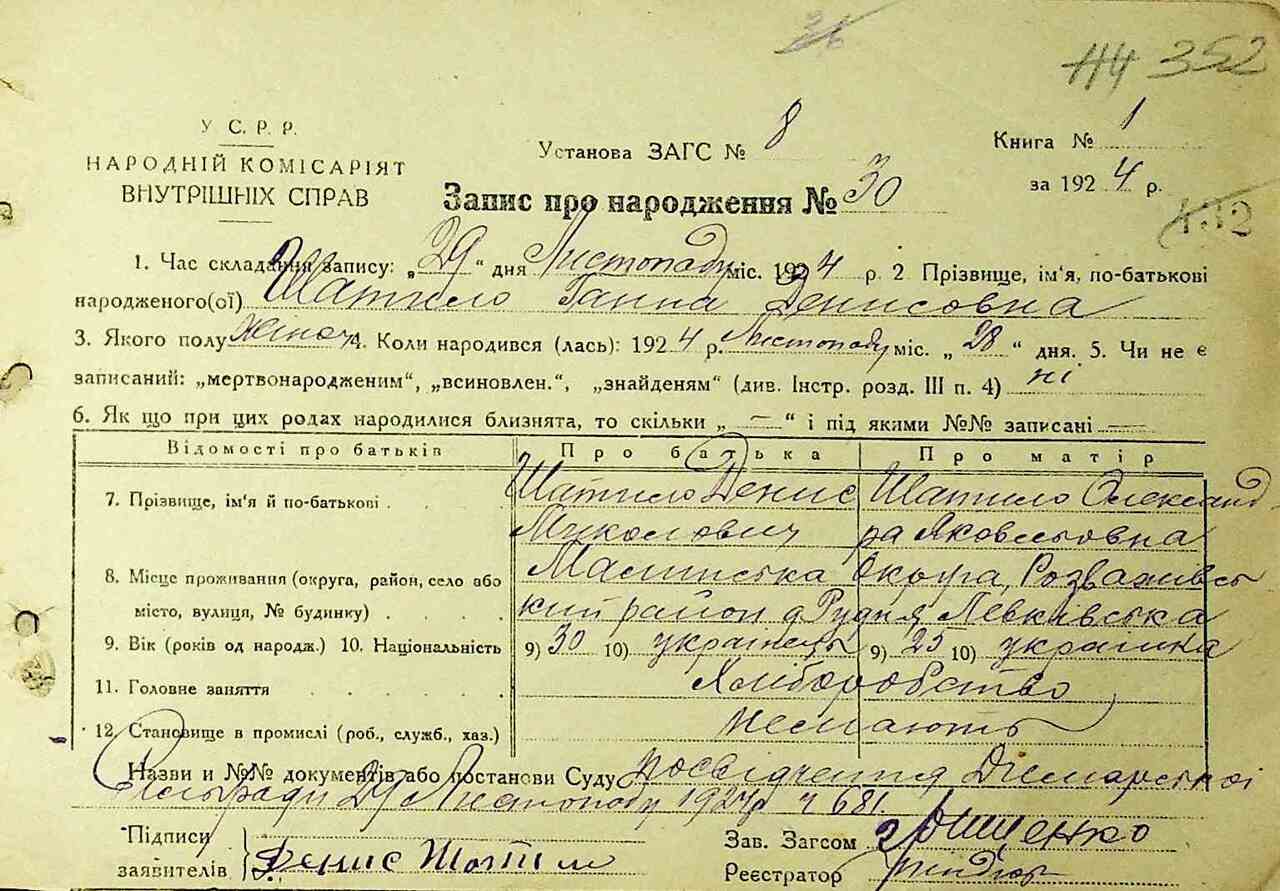 36
114 352
У С. Р. Р.
НАРОДНІЙ КОМІСАРІЯТ
ВНУТРІШНІХ СПРАВ
Установа ЗАГС № 8
Книга № 1
за 1924 р.
Запис про народження № 30
432
1. Час складання запису: „29“ дня Листопаду міс. 1924 р. 2 Прізвище, ім'я, по-батькові
народженого(ої) Шатило Ганна Денисовна
3. Якого полу жіноч 4. Коли народився (лась): 1924 р. Листопаду міс. „28“ дня. 5. Чи не є
записаний: „мертвонародженим“, „всиновлен.“, „знайденям“ (див. Інстр. розд. III п. 4) ні
6. Як що при цих родах народилися близнята, то скільки „—“ і під якими №№ записані —
Відомості про батьків Про батька Про матір
7. Прізвище, ім'я й по-батькові . . Шатило Денис Шатило Олександ
Миколович ра Яковльовна
8. Місце проживання (округа, район, село або Малинська Округа, Розважівсь
місто, вулиця, № будинку) . . . . кий район д. Рудня Левківська
9. Вік (років од народж.) 10. Національність 9) 30 10) українець 9) 25 10) українка
11. Головне заняття . . . . Хліборобство
12. Становище в промислі (роб., служб., хаз.) немають
Назви и №№ документів або постанови Суду посвідчення
Сельради 29 Листопаду 1924 р ч 681
Підписи
заявителів Денис Шатил
Зав. Загсом
Реєстратор